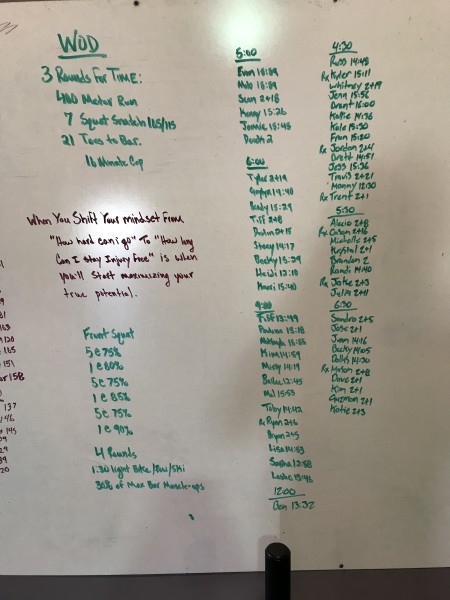 WOD
3 Rounds For Time:
400 Meter Run
7 Squat Snatch 165/115
21 Toes to Bar
16 Minute Cap
When You Shift Your mindset From
"How hard can i go" To "How long
Can I stay Injury Free" is when
you'll Start maximizing your
true potential.
Front Squat
5 @ 75%
1 @ 80%
5 @ 75%
1 @ 85%
5 @ 75%
1 @ 90%
4 Rounds
1:30 light Bike/Row/Ski
30% of Max Bar Muscle-ups
5:00
Evan
Milo
Sean 2+18
Kenny 15:26
Jamie 15:45
6:00
Tyler 2+19
14:40
Brady 15:29
Tiff 2+8
2+15
Stacy 14:17
Becky 15:29
Heidi 12:10
15:40
9:00
13:49
15:18
15:55
Kim 14:59
Missy 14:19
12:45
15:53
Toby 14:42
Rx Ryan 2+6
Bryan 2+5
Lisa 14:53
Sasha 12:58
Leslie 13:46
12:00
Ben 13:32
4:30
Russ 14:48
Rx Kyler 15:11
Whitney 2+19
Jenn 15:56
Brant 16:00
Katie 14:36
Kale 15:30
Fran 15:20
Rx Jordan 2+4
Brett 14:51
Jess 15:36
Travis 2+21
Manny 12:30
Rx Trent 2+1
5:30
Alecio 2+8
Rx 2+16
Michelle 2+5
Krystal 2+1
Brandon 2
Randi 14:40
Rx Jake 2+3
Julia 2+1
6:30
Sandra 2+5
Jose 2+1
Jenn 14:16
Becky 14:05
14:30
Rx Mason 2+8
Dave 2+1
Kim 2+1
Guzman 2+1
Katie 2+3